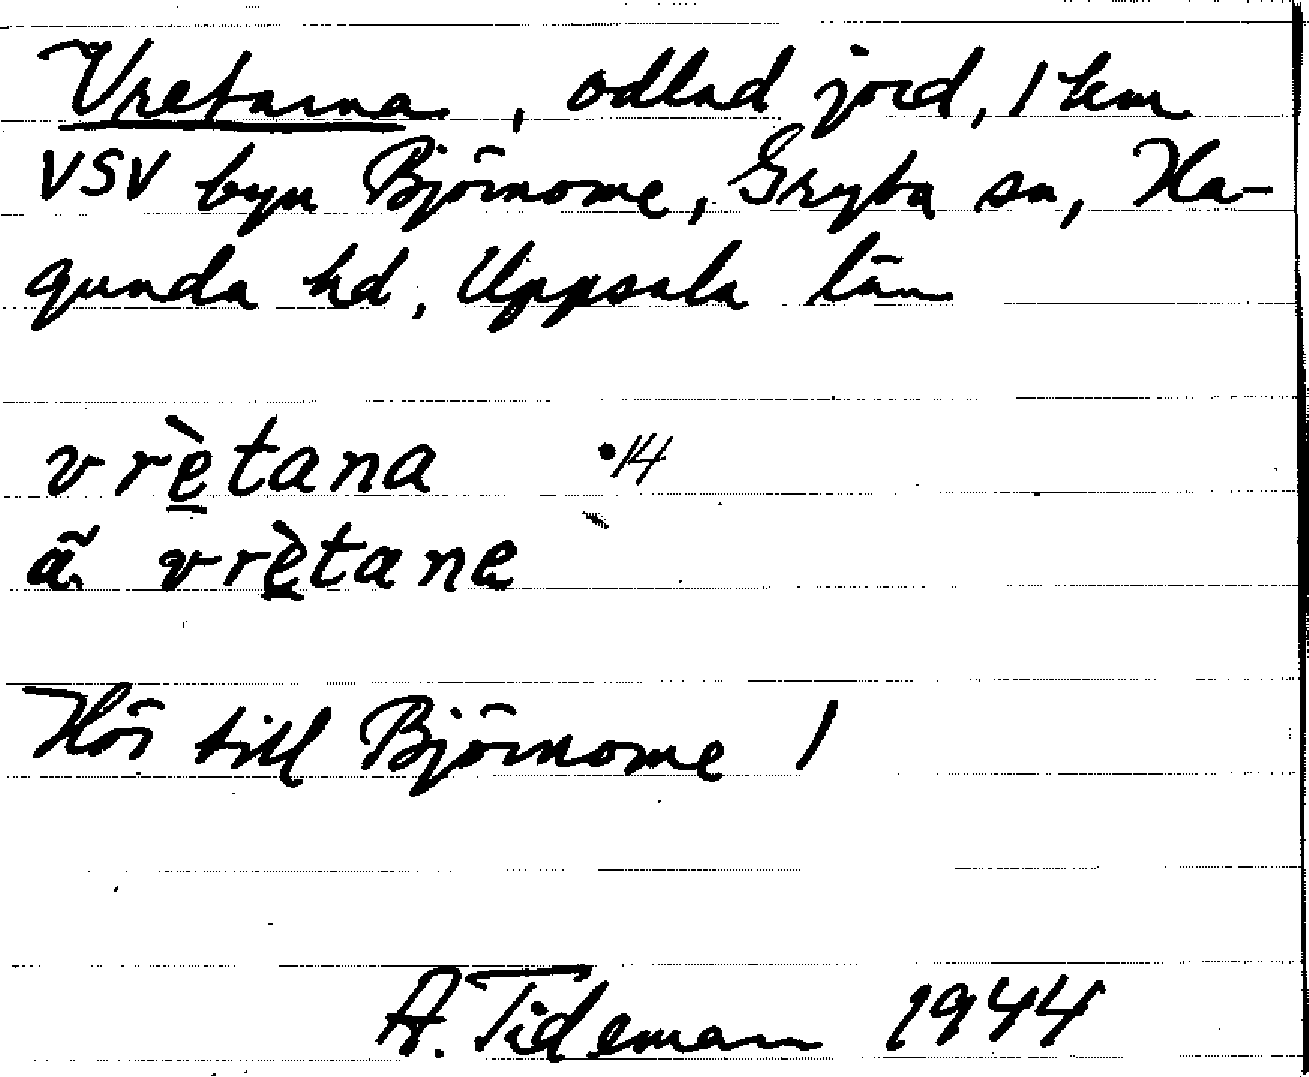 Vretarna, odlad jord, 1 km
VSV byn Björnome, Gryta sn, Ha-
gunda hd, Uppsala län
vrètana •14
ã vrètane
Hör till Björnome 1
A. Tideman 1944